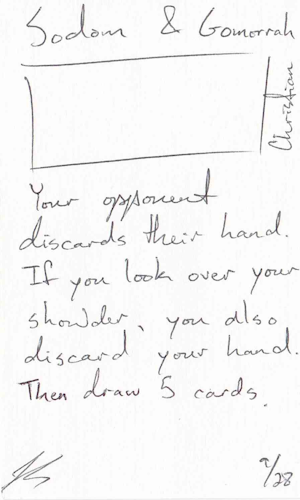 Sodom & Gomorrah
Christian
Your opponent
discards their hand.
If you look over your
showlder, you also
discard your hand.
Then draw 5 cards.
9/28